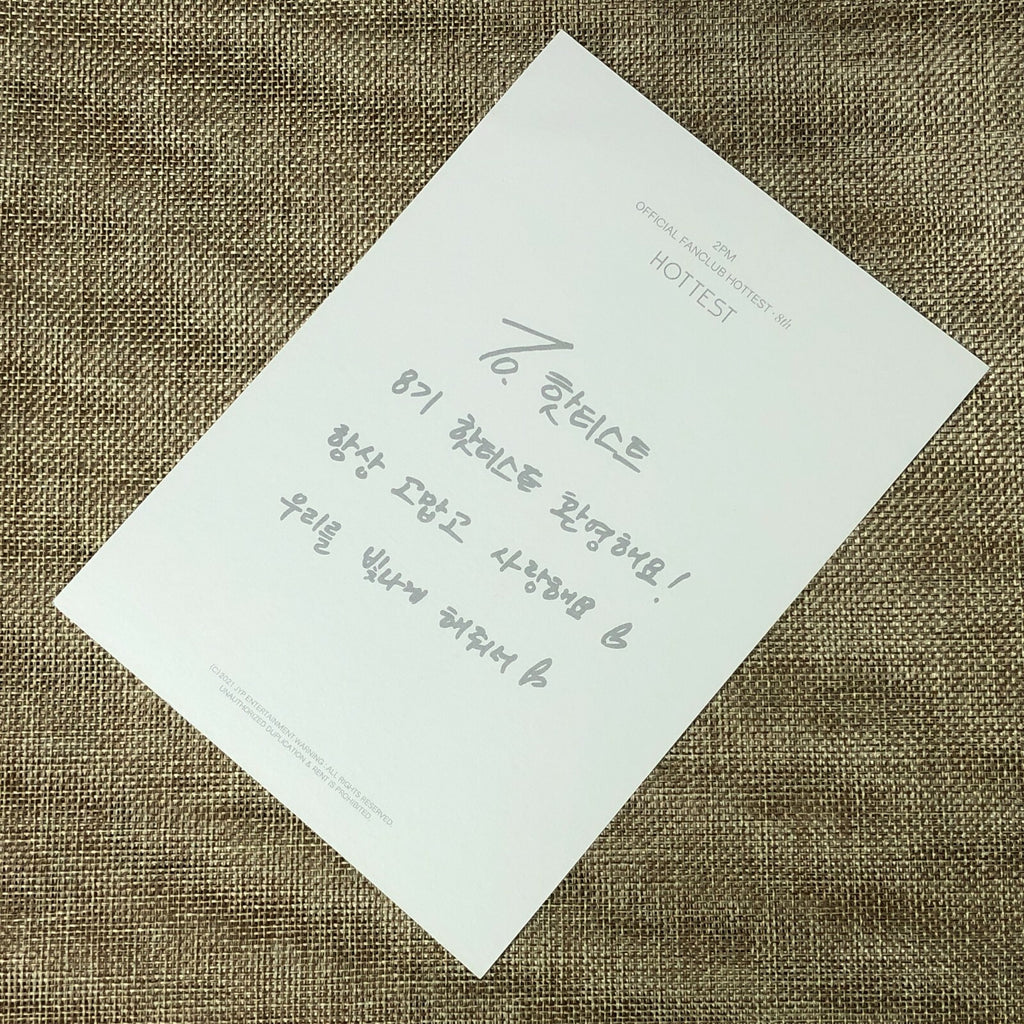 2PM
OFFICIAL FANCLUB HOTTEST - 8th
HOTTEST
To. 핫티스트
8기 핫티스트 환영해요!
항상 고맙고 사랑해요
우리를 빛나게 해줘서
(C) 2021 JYP ENTERTAINMENT WARNING : ALL RIGHTS RESERVED.
UNAUTHORIZED DUPLICATION & RENT IS PROHIBITED.